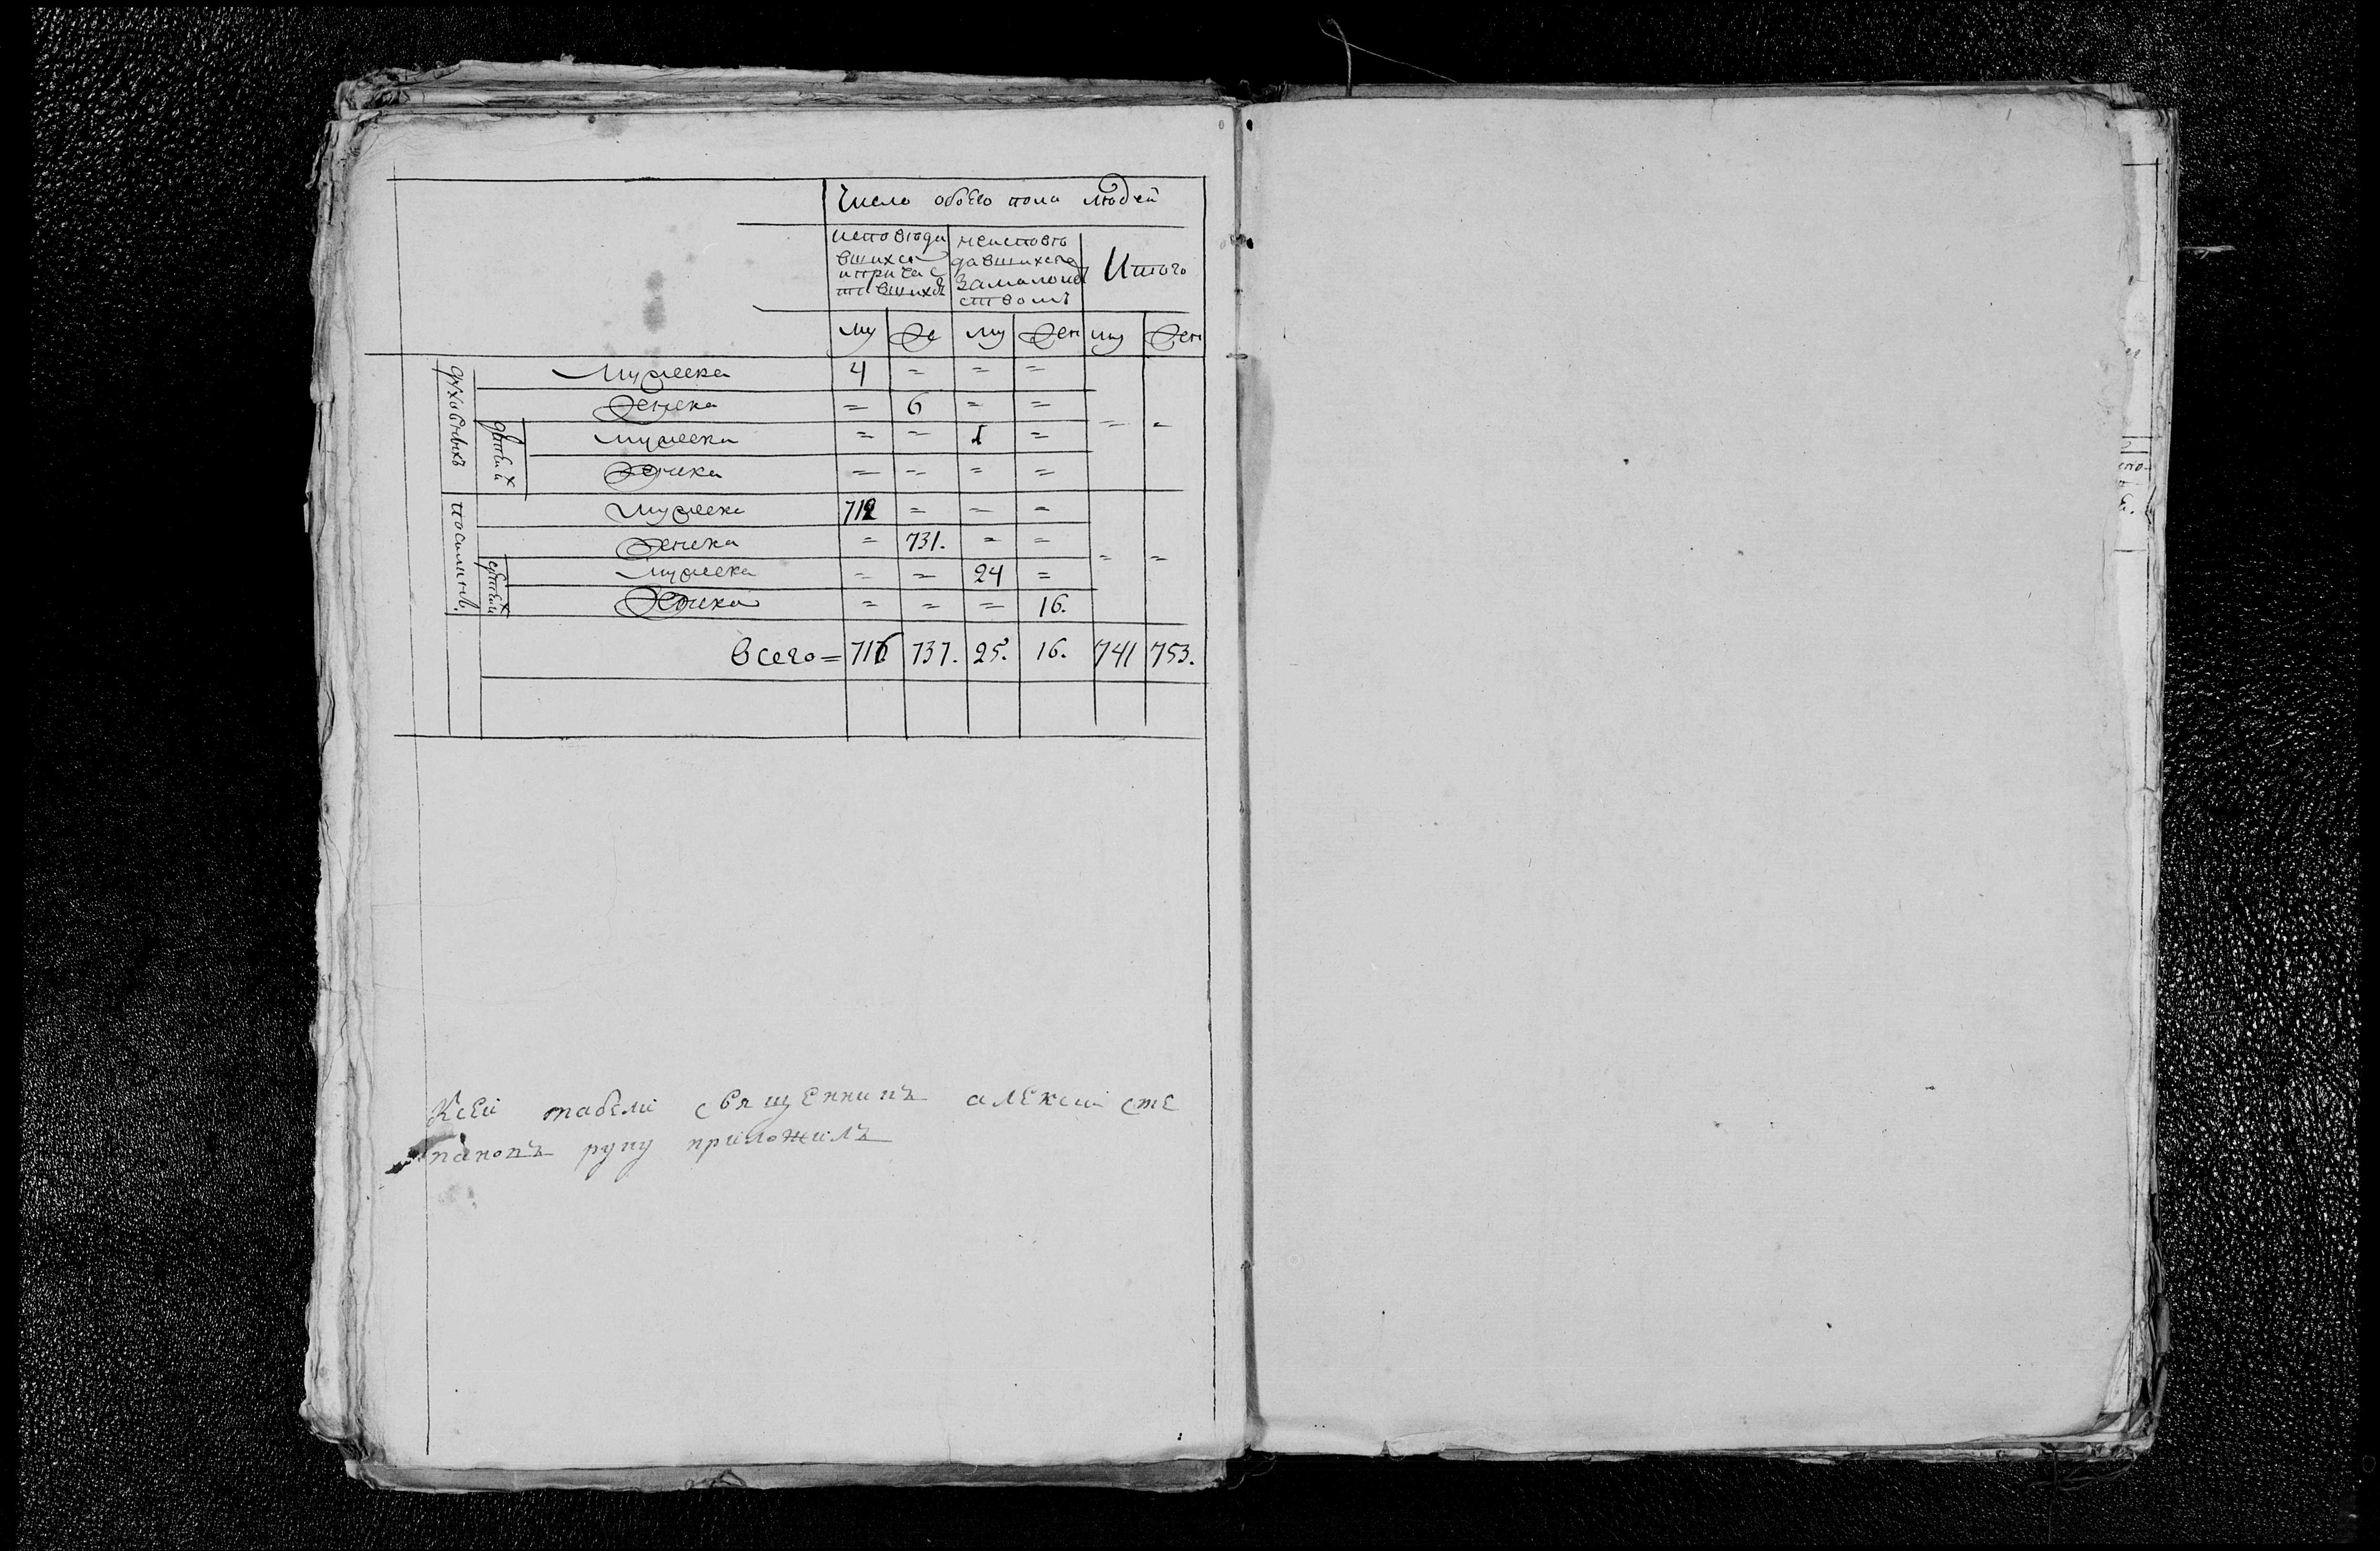 Число обоего пола людей
исповѣда
вшихся
и причас
тившихся
неисповѣ
давшихся
за малолѣт
ствомъ
Итого
му же му жен му жен
духовныхъ
мужеска 4 = = =
женска = 6 = =
дѣтей ихъ
мужеска = = 1 = = =
женска = = = =
посацкихъ
мужеска 712 = = =
женска = 731. = =
дѣтей ихъ
мужеска = = 24 = = =
женска = = = 16.
Всего = 716 737. 25. 16. 741 753.
К сей табели священникъ алексей сте
пановъ руку приложилъ